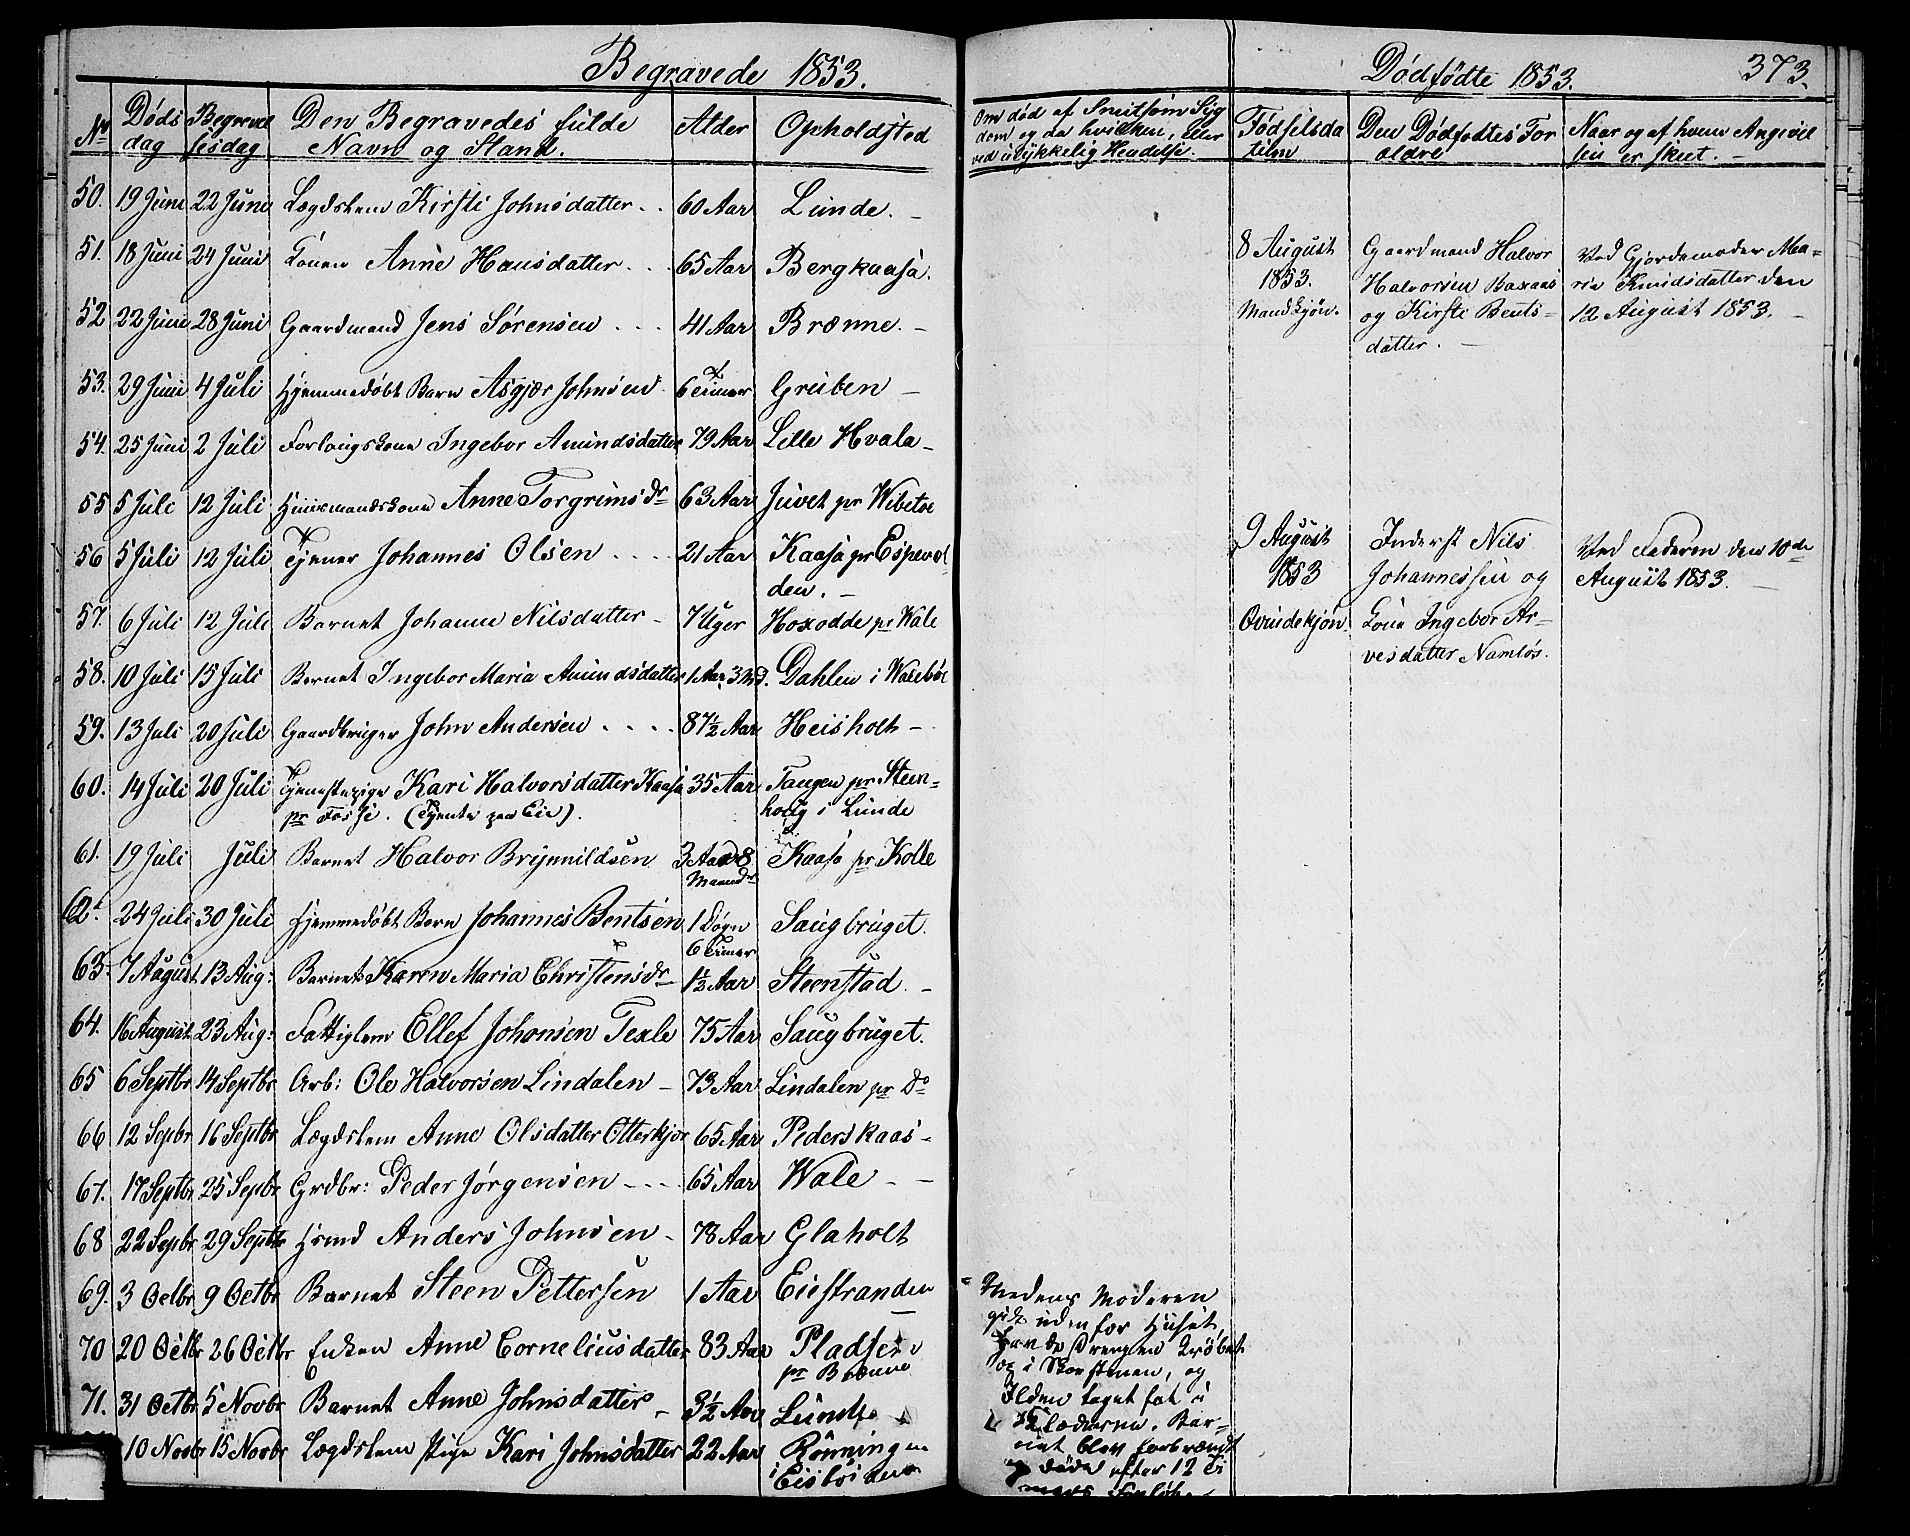 Begravede 1853.
No
Døds
dag
Begravel
sesdag
Den Begravedes fulde
Navn og Stand.
Alder
Opholdsted
50. 19 Juni 22 Juni Lægdslem Kirsti Johnsdatter . . 60 Aar Lunde. –
51. 18 Juni 24 Juni Konen Anne Hansdatter . . . 65 Aar Bergkaasa.
52 22 Juni 28 Juni Gaardmand Jens Sørensen . . . 41 Aar Brænne. –
53. 29 Juni 4 Juli Hjemmedøbt Barn Asgjær Johnsen 6 Timer Gruben –
54. 25 Juni 2 Juli Forlougskone Ingebor Amundsdatter 79 Aar Lille Hvala –
55 5 Juli 12 Juli Huusmandskone Anne Torgrimsdr 63 Aar Juvet pr Wibetoe
56 5 Juli 12 Juli Tjener Johannes Olsen . . . . 21 Aar Kaasa pr Espevol
den. –
57. 6 Juli 12 Juli Barnet Johanne Nilsdatter – 7 Uger Hoxodde pr Wale
58. 10 Juli 15 Juli Barnet Ingebor Maria Amundsdatter 1 Aar 3 Md. Dahlen i Walebøe
59. 13 Juli 20 Juli Gaardbruger John Andersen . . . . 87½ Aar Heisholt –
60. 14 Juli 20 Juli Tjenestepige Kari Halvorsdatter Kaasa 35 Aar Tangen pr Steen-
pr Fosse. (Tjente paa Eie). houg i Lunde
61. 19 Juli Juli Barnet Halvor Brynnildsen 3 Aar 8 Kaasa pr Kolle
Maandr
62. 24 Juli 30 Juli Hjemmedøbt Barn Johannes Bentsen 1 Døgn Saugbruget.
6 Timer
63. 7 August 13 Aug: Barnet Karen Maria Christensdr 1½ Aar Steenstad. –
64. 16 August 23 Aug: Fattiglem Ellef Johansen Texle 75 Aar Saugbruget.
65 6 Septbr 14 Septbr Arb: Ole Halvorsen Lindalen – 73 Aar Lindalen pr Do
66 12 Sepbr 16 Septbr Lægdslem Anne Olsdatter Otterkjær 65 Aar Peders kaas –
67. 17 Septbr 25 Sepbr Grdbr: Peder Jørgensen – . . . 65 Aar Wale – –
68 22 Sepbr 29 Septbr Hsmd Anders Johnsen – 78 Aar Glaholt
69. 3 Octbr 9 Octbr Barnet Steen Pettersen 1 Aar Eiestranden
70 20 Octbr 26 Octbr Enken Anne Corneliusdatter 83 Aar Pladsen
pr Brænne
71. 31 Octbr 5 Novbr Barnet Anne Johnsdatter – 3½ Aar Lunde
10 Novbr 15 Novbr Lægdslem Pige Kari Johnsdatter 22 Aar Rønningen
i Eisbøi
Dødfødte 1853. 373.
Om død af Smitsom Syg
dom og da hvilken, eller
ved ulykkelig Hendelse.
Fødselsda
tum
Den Dødfødtes For
ældre
Naar og af hvem Angivel
sen er skeet. –
8 August
1853.
Mandkjøn.
Gaardmand Halvor
Halvorsen Baxaas
og Kirsti Bents-
datter. –
Ved Gjordemoder Ma-
rie Knudsdatter den
12 August 1853. –
9 August
1853
Qvindekjøn.
Inderst Nils
Johannessen og
Kone Ingebor Ar-
vesdatter Namløs.
Ved Faderen den 10de
August 1853. –
Medens Moderen
gik udenfor Huset
havde Drengen krøbet
op i Skorstenen, og
Ilden taget fat i
Klæderne. Bar-
net blev forbrændt
og døde efter 12 Ti
mers Forløb